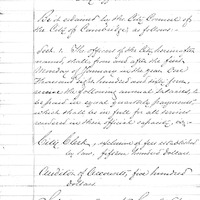 Be it ordained by the City Council of
the City of Cambridge, as follows:
Sect. 1. The officers of the City hereinafter
named, shall, from and after the first
Monday of January in the year One
thousand eight hundred and sixty four,
receive the following annual salaries, to
be paid in equal quarterly payments,
which shall be in full for all services
rendered in their official capacity, viz:
City Clerk, exclusive of fees established
by law, fifteen hundred dollars.
Auditor of Accounts, five hundred
dollars.